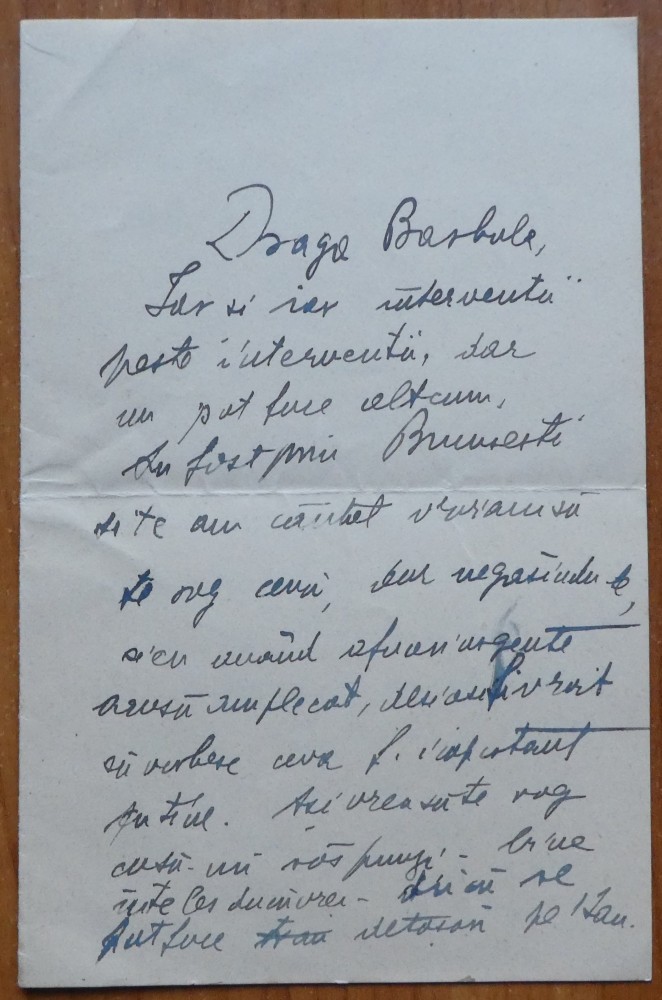 Draga Barbule,
Iar si iar interventii
peste interventii, dar
nu pot face altcum,
Am fost prin Bucuresti
si te am căutat vroiam să
te rog ceva, dar negăsindu te,
si eu având afaceri urgente
acasă am plecat, desi asi fi vroit
să vorbesc ceva f. important
cu tine. Asi vrea să te rog
ca să-mi răspunzi - bine
înteles dacă vrei - dacă se
pot face detasări pe 1 Ian.